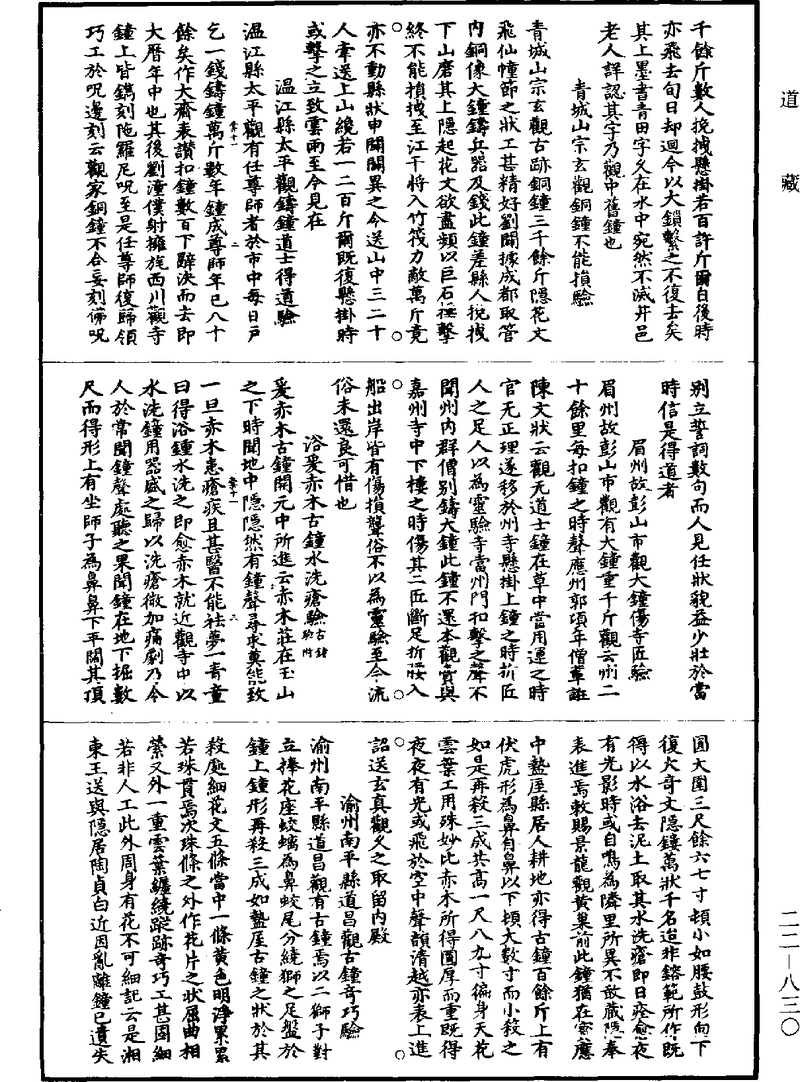 道藏
千餘斤數人挽拽懸掛若百許斤爾自後時
亦飛去旬日却迴今以大鎖繫之不復去矣
其上墨書青田字久在水中宛然不滅井邑
老人詳認其字乃觀中舊鐘也
青城山宗玄觀銅鐘不能損驗
青城山宗玄觀古跡銅鐘三千餘斤隱花文
飛仙幢節之狀工甚精好劉闢據成都取管
內銅像大鐘鑄兵器及錢此鐘差縣人挽拽
下山磨其上隱起花文欲盡頻以巨石極擊
終不能損拽至江干將入竹筏力敵萬斤竟
亦不動縣狀申闢闢異之令送山中三二十
人牽送上山纔若一二百斤爾既復懸掛時
或擊之立致雲雨至今見在
溫江縣太平觀鑄鐘道士得道驗
溫江縣太平觀有任尊師者於市中每日戶
乞一錢鑄鐘萬斤數年鐘成尊師年已八十
餘矣作大齋表讚扣鐘數百下辭決而去即
大曆年中也其後劉潼僕射擁旄西川觀寺
鐘上皆鐫刻陁羅尼呪至是任尊師復歸領
巧工於呪邊刻云觀家銅鐘不合妄刻佛呪
別立誓詞數句而人見任狀貌益少壯於當
時信是得道者
眉州故彭山市觀大鐘傷寺匠驗
眉州故彭山市觀有大鐘重千斤觀云州二
十餘里每扣鐘之時聲應州郭頃年僧輩誑
陳文狀云觀无道士鐘在草中當用運之時
官无正理遂移於州寺懸掛上鐘之時折匠
人之足人以為靈驗寺當州門扣擊之聲不
聞州內群僧別鑄大鐘此鐘不還本觀賣與
嘉州寺中下樓之時傷其二匠斷足折腰入
船出岸皆有傷損聾俗不以為靈驗至今流
俗未還良可惜也
浴爰赤木古鐘水洗瘡驗古鐘附
爰赤木古鐘開元中所進云赤木莊在玉山
之下時聞地中隱隱然有鐘聲尋求莫能致
一旦赤木患瘡疾且甚醫不能祛夢一青童
曰得浴鐘水洗之即愈赤木就近觀寺中以
水洗鐘用器盛之歸以洗瘡微加痛劇乃令
人於常聞鐘聲處聽之果聞鐘在地下掘數
尺而得形上有坐師子為鼻鼻下平闊其頂
圓大圍三尺餘六七寸頓小如腰鼓形向下
復大奇文隱鏤萬狀千名迨非鎔範所作既
得以水浴去泥土取其水洗瘡即日痊愈夜
有光影時或自鳴為隣里所異不敢藏隱奉
表進焉敕賜景龍觀黃巢前此鐘猶在密應
中盩厔縣居人耕地亦得古鐘百餘斤上有
伏虎形為鼻自鼻以下頓大數寸而小殺之
如是再殺三成共高一尺八九寸徧身天花
雲葉工用殊妙比赤木所得圓厚而重既得
夜夜有光或飛於空中聲韻清越亦表上進
詔送玄真觀久之取留內殿
渝州南平縣道昌觀古鐘奇巧驗
渝州南平縣道昌觀有古鐘焉以二獅子對
立捧花座蛟螭為鼻蛟尾分繞獅之足盤於
鐘上鐘形再殺三成如盩厔古鐘之狀於其
殺處細花文五條當中一條黃色明淨累累
若珠貫焉次珠條之外作花片之狀屈曲相
縈又外一重雲葉纏繞蹤跡奇巧工甚固細
若非人工此外周身有花不可細記云是湘
東王送與隱居陶貞白近因亂離鐘已遺失
二二—八三〇